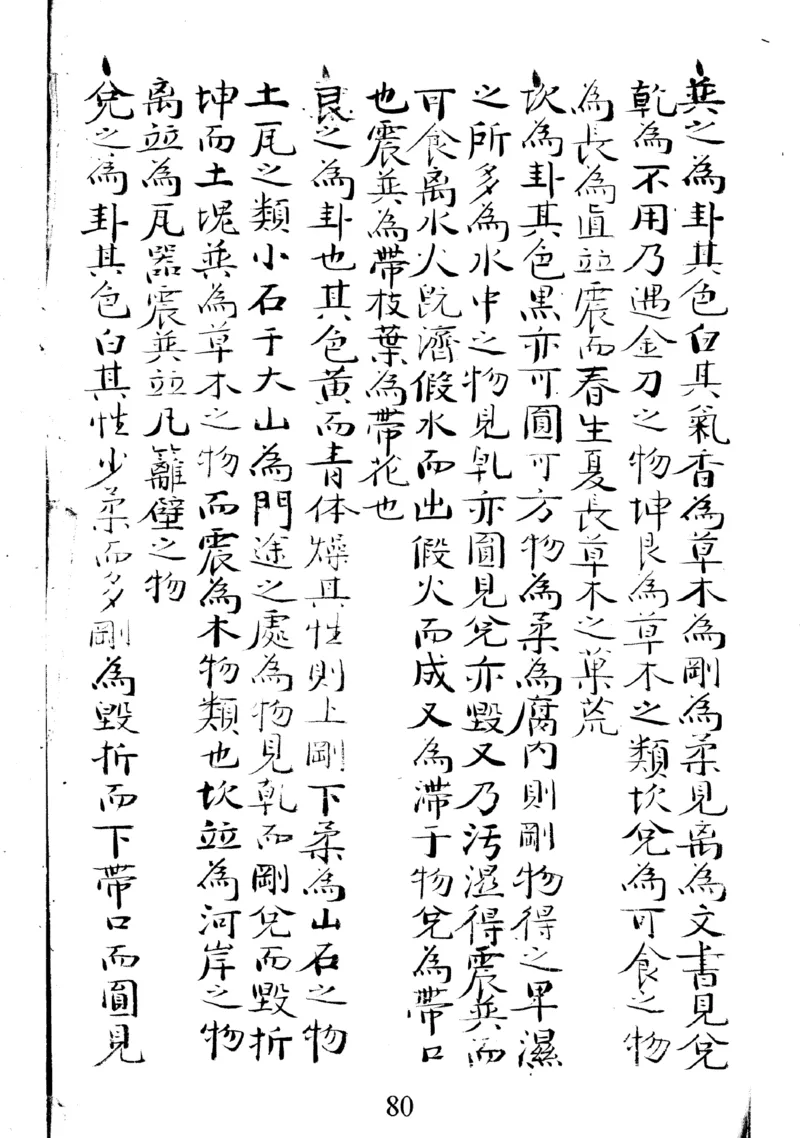 巽之為卦其色白其氣香為草木為剛為柔見离為文書見兌
乾為不用乃遇金刀之物坤艮為草木之類坎兌為可食之物
為長為直並震而春生夏長草木之菓荒
坎為卦其色黑亦可圓可方物為柔為腐內則剛物得之卑濕
之所多為水中之物見乹亦圓見兌亦毀又乃污濕得震巽而
可食离水火既濟假水而出假火而成又為滞于物兌為帶口
也震巽為帶枝葉為帶花也
艮之為卦也其色黃而青体燥其性則上剛下柔為山石之物
土瓦之類小石于大山為門途之處為物見乹而剛兌而毀折
坤而土塊巽為草木之物而震為木物類也坎並為河岸之物
离並為瓦器震巽並凡籬壁之物
兌之為卦其色白其性少柔而多剛為毀折而下帶口而圓見
80